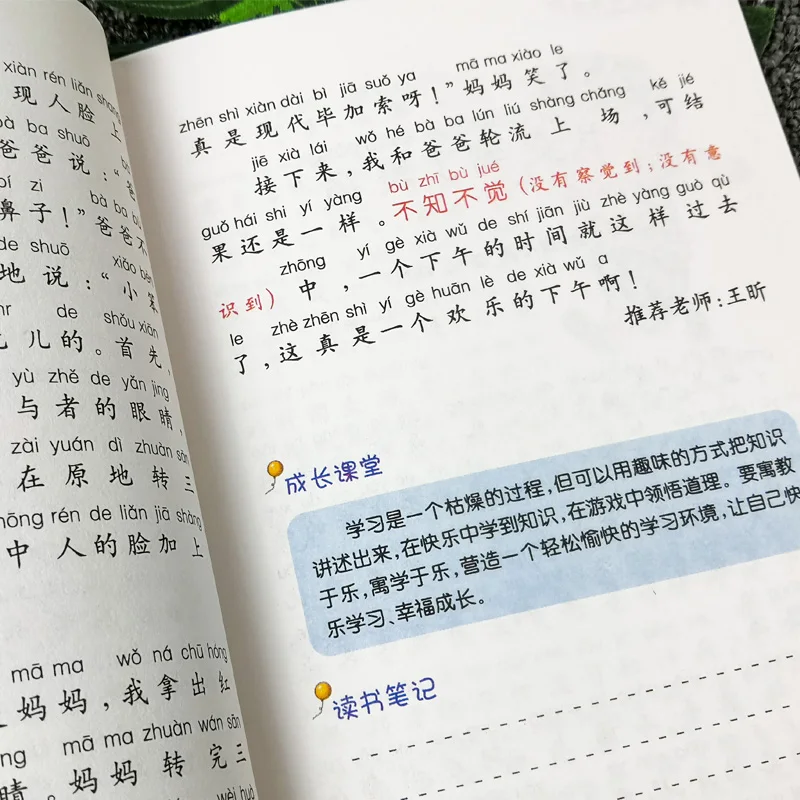 xiàn rén liǎn shang
现人脸上
bà ba shuō
爸爸说：“
bí zi bà ba
鼻子！”爸爸不
de shuō xiǎo bèn
地说：“小笨
de shǒu xiān
儿的。首先，
yù zhě de yǎn jing
与者的眼睛，
zài yuán dì zhuàn sān
在原地转三
zhōng rén de liǎn jiā shàng
中人的脸加上
mā ma wǒ ná chū hóng
妈妈，我拿出红
mā ma zhuàn wán sān
睛。妈妈转完三
wèi huò
zhēn shì xiàn dài bì jiā suǒ ya mā ma xiào le
真是现代毕加索呀！”妈妈笑了。
jiē xià lái wǒ hé bà ba lún liú shàng chǎng kě jié
接下来，我和爸爸轮流上场，可结
guǒ hái shi yí yàng bù zhī bù jué
果还是一样。不知不觉（没有察觉到；没有意
zhōng yí gè xià wǔ de shí jiān jiù zhè yàng guò qù
识到）中，一个下午的时间就这样过去
le zhè zhēn shì yí gè huān lè de xià wǔ a
了，这真是一个欢乐的下午啊！
推荐老师：王昕
成长课堂
学习是一个枯燥的过程，但可以用趣味的方式把知识
讲述出来，在快乐中学到知识，在游戏中领悟道理。要寓教
于乐，寓学于乐，营造一个轻松愉快的学习环境，让自己快
乐学习、幸福成长。
读书笔记